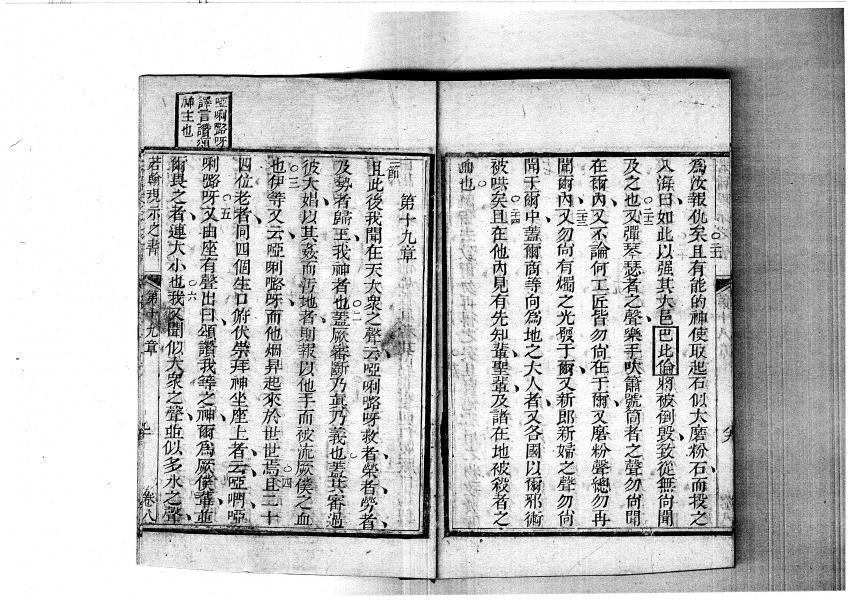 為汝報仇矣且有能的神使取起石似大磨粉石而投之
入海曰如此以强其大邑巴比倫將被倒毀致從無尚聞
及之也又彈琴瑟者之聲樂手吹簫號筒者之聲勿尚聞
在爾內又不論何工匠皆勿尚在于爾又磨粉聲總勿再
聞爾內又勿尚有燭之光發于爾又新郎新婦之聲勿尚
聞于爾中蓋爾商等向為地之大人者又各國以爾邪術
被哄矣且在他內見有先知輩聖輩及諸在地被殺者之
血也
第十九章
一節
且此後我聞在天大眾之聲云啞唎嚕呀救者榮者勞者
及勢者歸王我神者也蓋厥審斷乃真乃義也蓋其審過
彼大娼以其姦而汚地者則報以他手而被流厥僕之血
也伊等又云啞唎嚕呀而他烟昇起來於世世焉且二十
四位老者同四個生口俯伏崇拜神坐座上者云啞們啞
唎嚕呀又由座有聲出曰頌讚我等之神爾為厥僕輩並
爾畏之者連大小也我又聞似大眾之聲並似多水之聲
啞唎嚕呀
譯言讚頌
神主也
若翰現示之書
第十九章
卷八